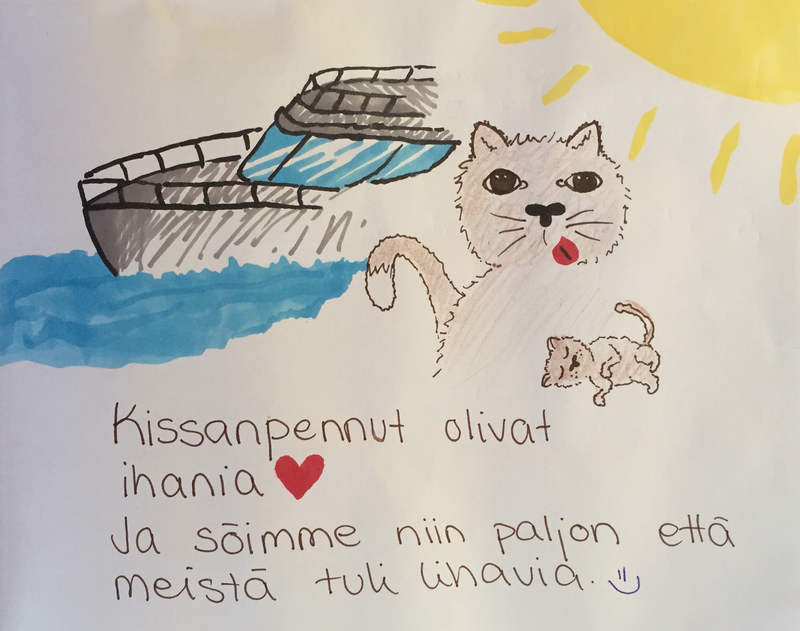 Kissanpennut olivat
ihania ❤
Ja söimme niin paljon että
meistä tuli lihavia. :)